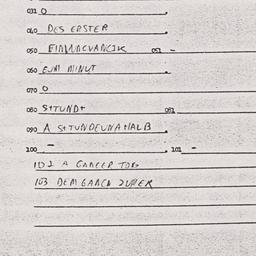 031 O
040 DES ERSTER
050 051 -
060 EUM MINUT
070 O
080 S+TUND+ 081
090 A S+TUNDEUNA+HALB
100 - 101 -
102 A GANCER TOG
103 DEM GANCN